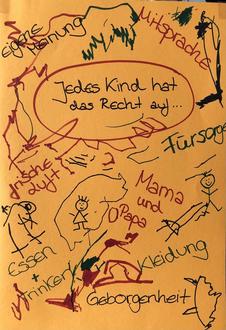 eigene Meinung
Mitsprache
Jedes Kind hat
das Recht auf...
Fürsorge
frische
Luft
Mama
und
Papa
Essen
+
Trinken
Kleidung
Geborgenheit